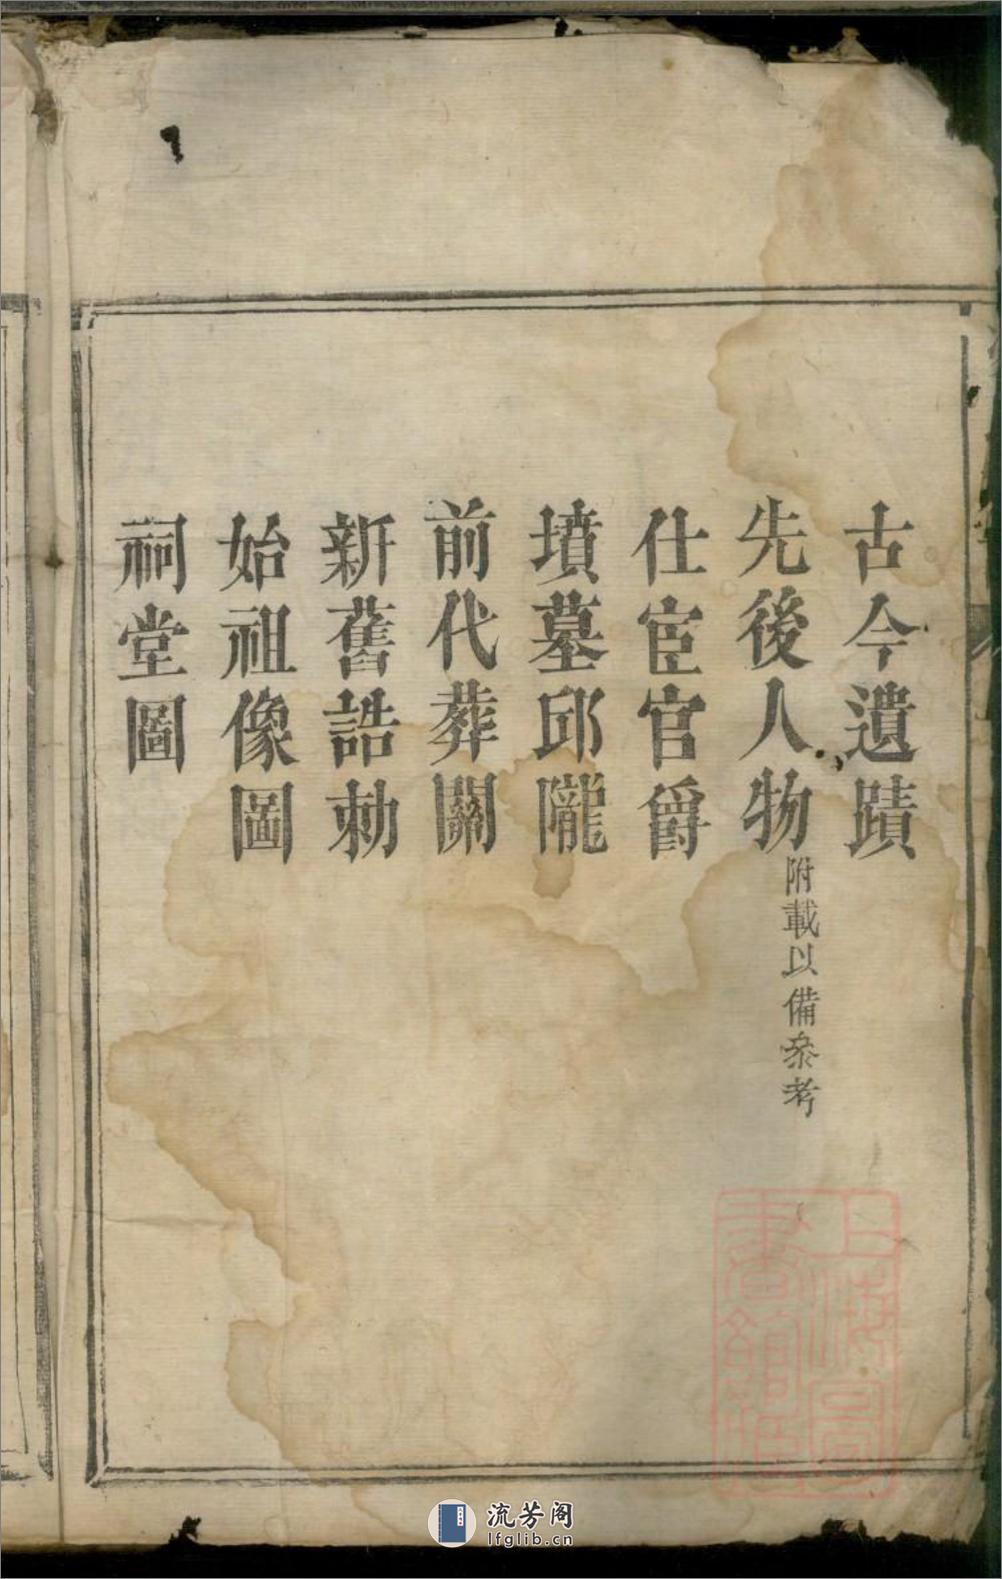 古今遺蹟
先後人物 附載以備叅考
仕宦官爵
墳墓邱隴
前代葬關
新舊誥勅
始祖像圖
祠堂圖
上海圖書館藏
流芳阁
lfglib.cn